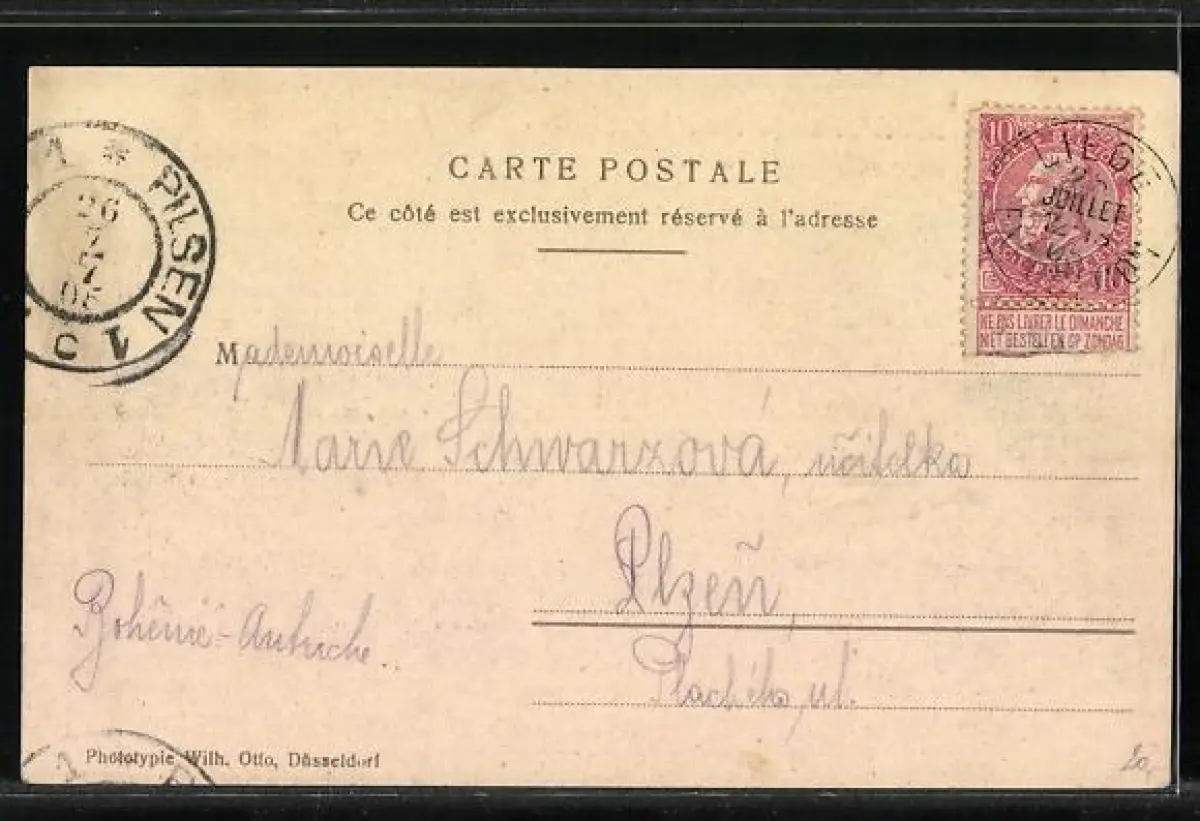 CARTE POSTALE
Ce côté est exclusivement réservé à l'adresse
1 * PILSEN 1 c
26
7
05
10
LIEGE
JUILLET
10
NE PAS LIVRER LE DIMANCHE
NIET BESTELLEN OP ZONDAG
Mademoiselle
Marie Schwarzová, učitelka
Plzeň,
Bohême-Autriche.
ul.
Phototypie Wilh. Otto, Düsseldorf
20,-